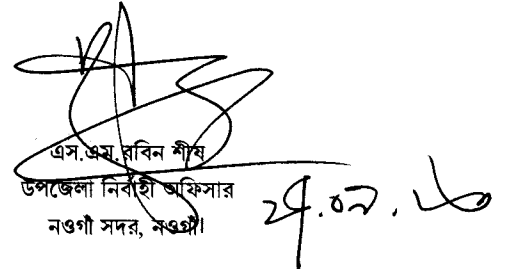 এস.এম.রবিন শীষ
উপজেলা নির্বাহী অফিসার
নওগাঁ সদর, নওগাঁ।